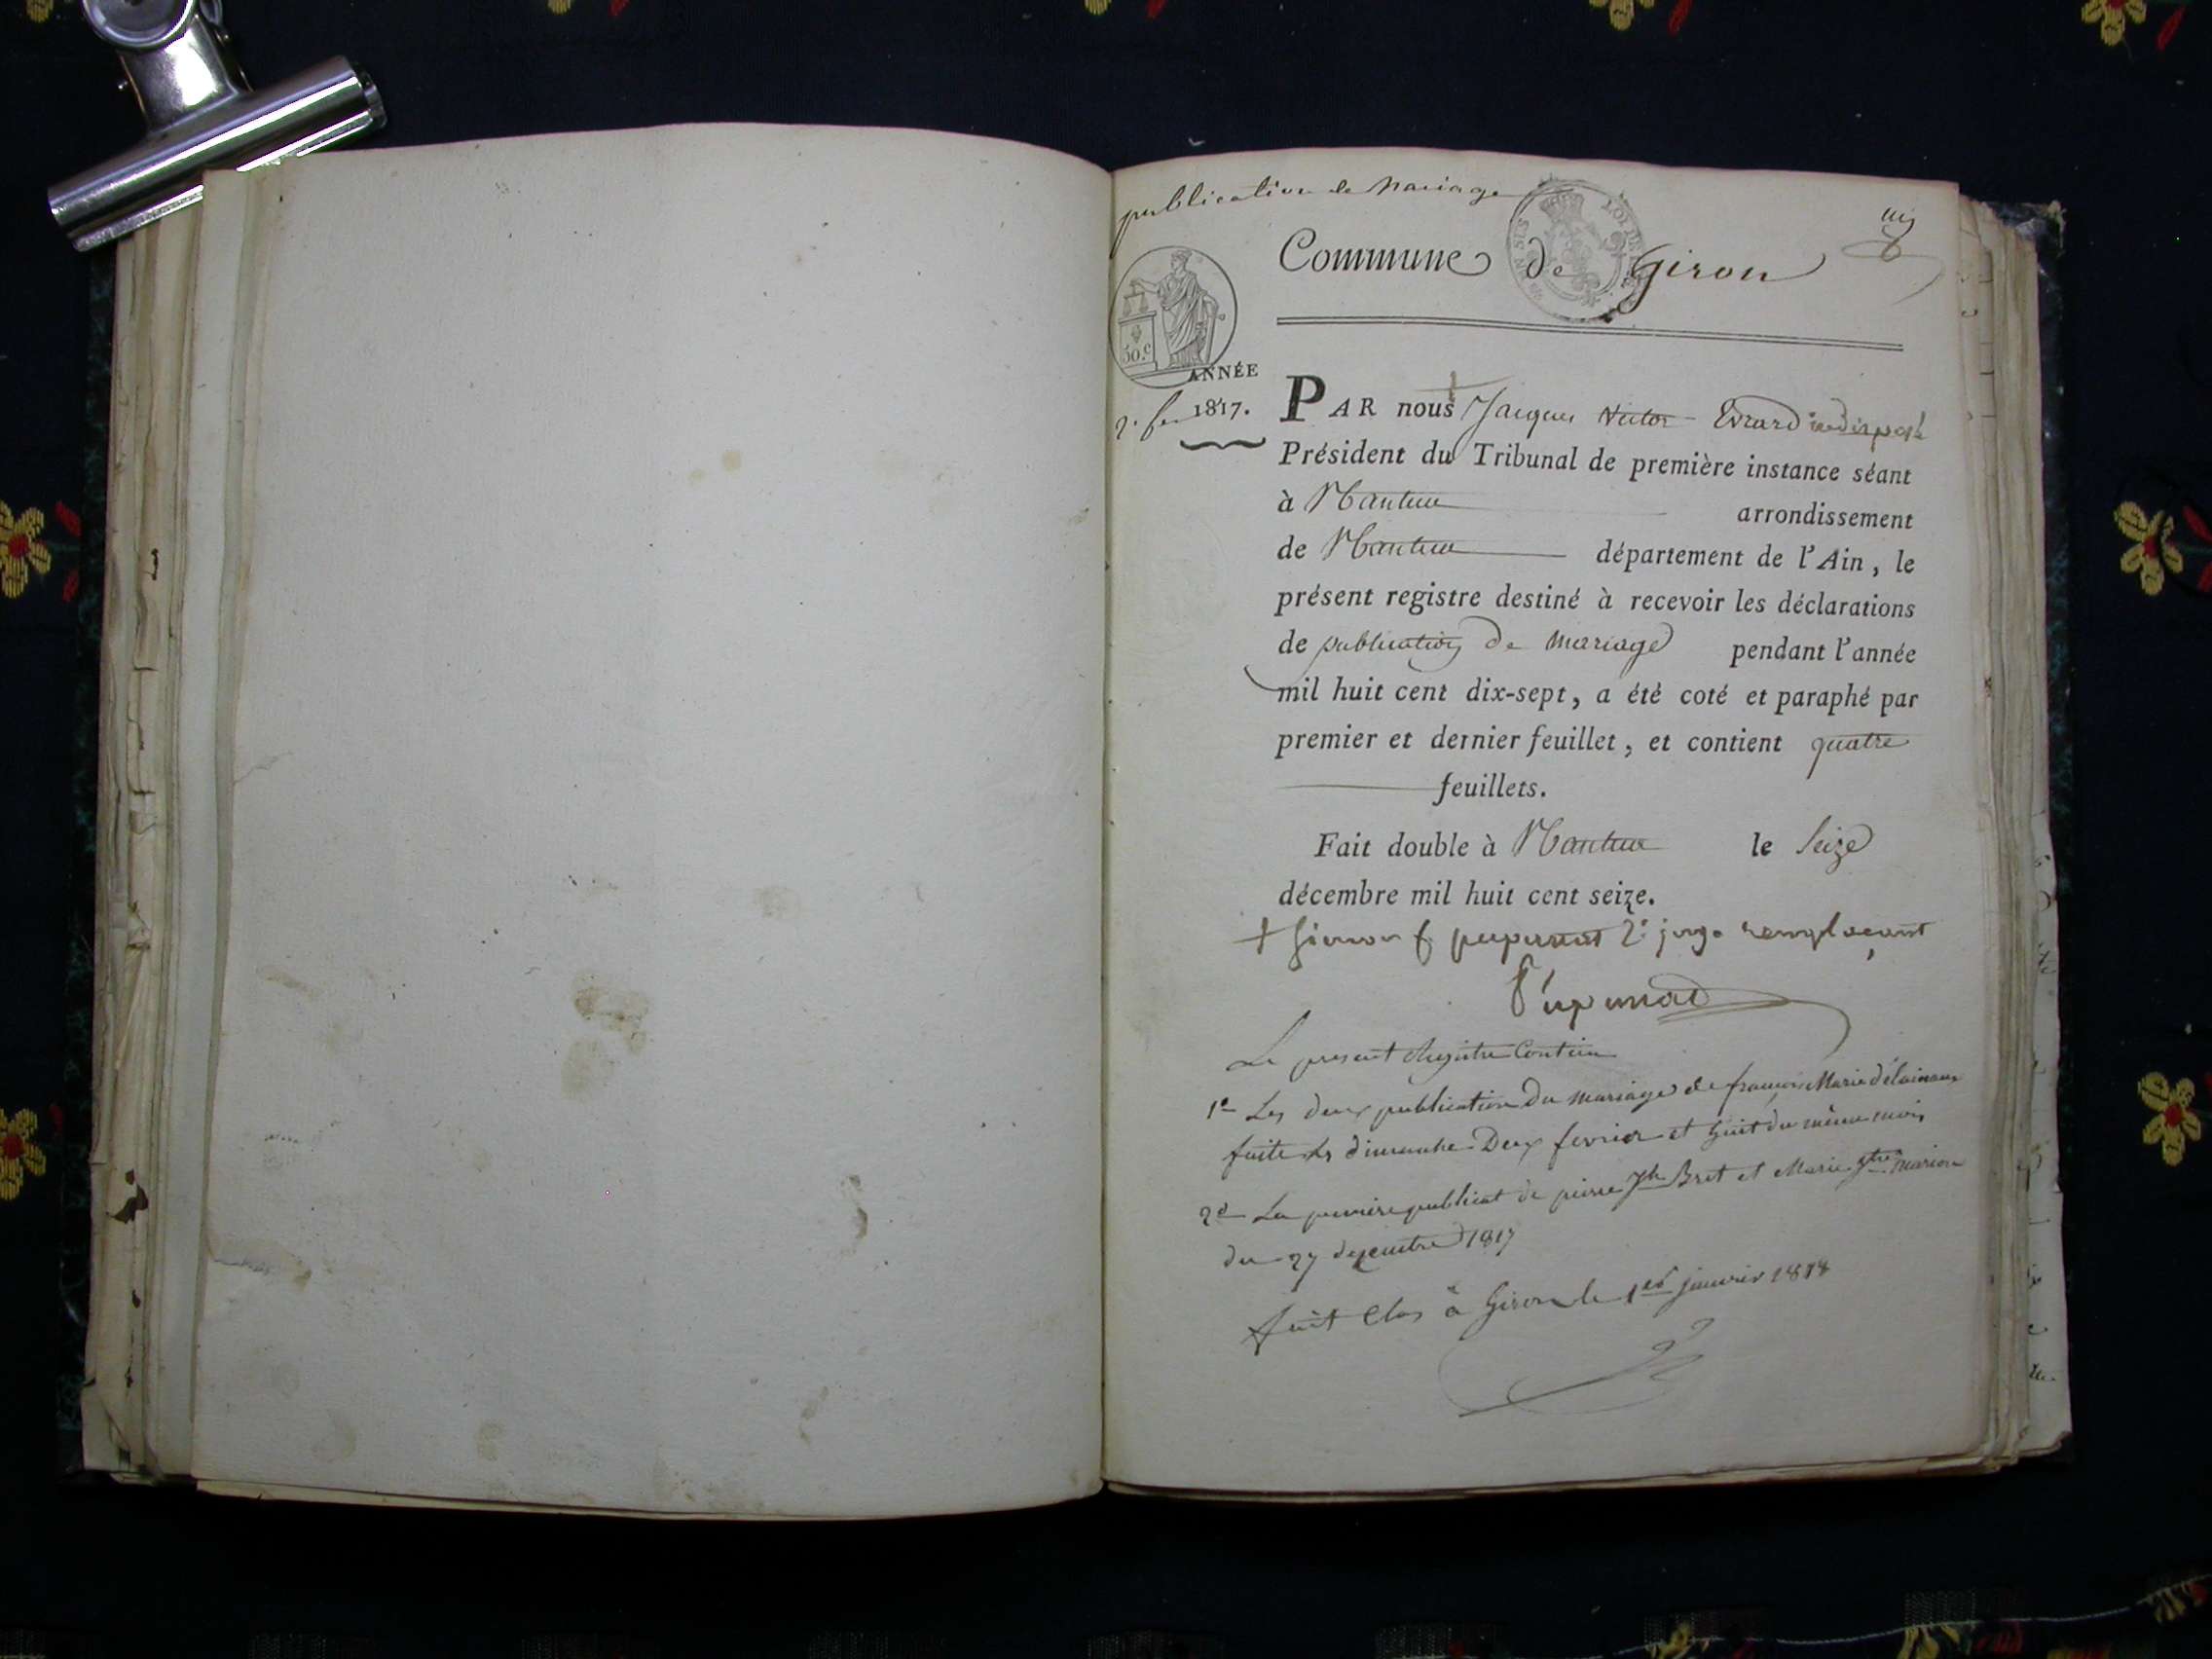 publication de mariage
Commune de Giron
50.c
ANNÉE
1817.
PAR nous Jacques Victor Evrard indisposé
Président du Tribunal de première instance séant
à Nantua arrondissement
de Nantua département de l'Ain, le
présent registre destiné à recevoir les déclarations
de publication de mariage pendant l'année
mil huit cent dix-sept, a été coté et paraphé par
premier et dernier feuillet, et contient quatre
feuillets.
Fait double à Nantua le Seize
décembre mil huit cent seize.
2e juge remplaçant
Le present Registre Contien
1o Les deux publication du mariage de françois Marie
faite les dimanche Deux fevrier et huit du même mois
2o La premiere publicat de pierre Jh Bret et Marie marion
du 27 decembre 1817
fait Clos à Giron le 1er janvier 1818